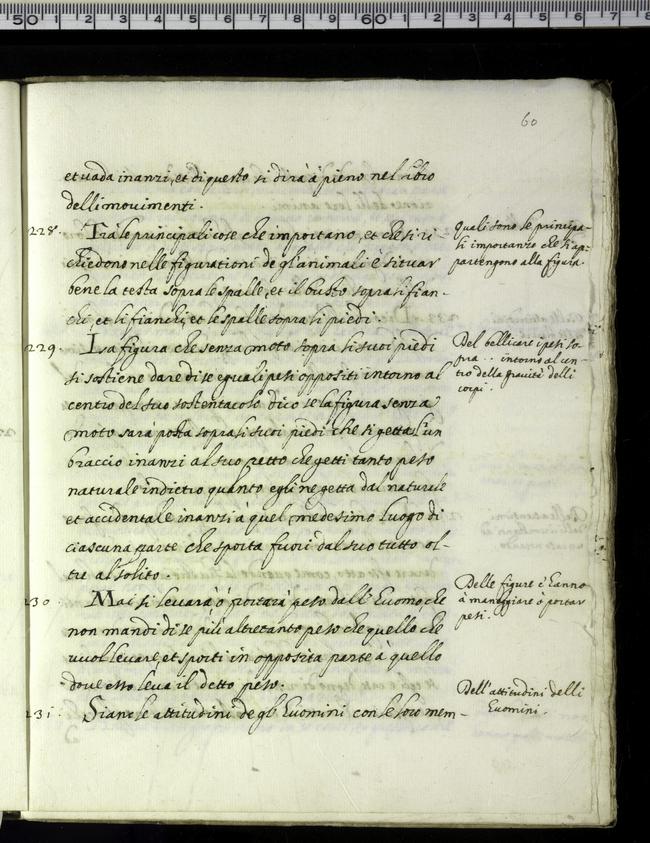 60
et uada inanzi, et di questo si dirà à pieno nel libro
delli mouimenti.
228. Trà le principali cose che importano, et che si ri-
chiedono nelle figurationi de gl'animali è situar
bene la testa sopra le spalle, et il busto sopra li fian-
chi, et li fianchi, et le spalle sopra li piedi.
Quali sono le principa-
li importanze che s'ap-
partengono alla figura.
229. La figura che senza moto sopra li suoi piedi
si sostiene dare di se eguali pesi oppositi intorno al
centro del suo sostentacolo dico se la figura senza
moto sarà posta sopra li suoi piedi che si getta l'un
braccio inanzi al suo petto che getti tanto peso
naturale indietro quanto egli ne getta dal naturale
et accidentale inanzi à quel medesimo luogo di
ciascuna parte che sporta fuori dal suo tutto ol-
tre al solito.
Del bellicare i pesi so-
pra intorno al cen-
tro della grauità delli
corpi.
230. Mai si leuarà ò portarà peso dall'huomo che
non mandi di se più altretanto peso che quello che
uuol leuare, et sporti in opposita parte à quello
doue esso leua il detto peso.
Delle figure c'hanno
à maneggiare ò portar
pesi.
231. Siano le attitudini de gl'huomini con le loro mem-
Dell'attitudini delli
huomini.